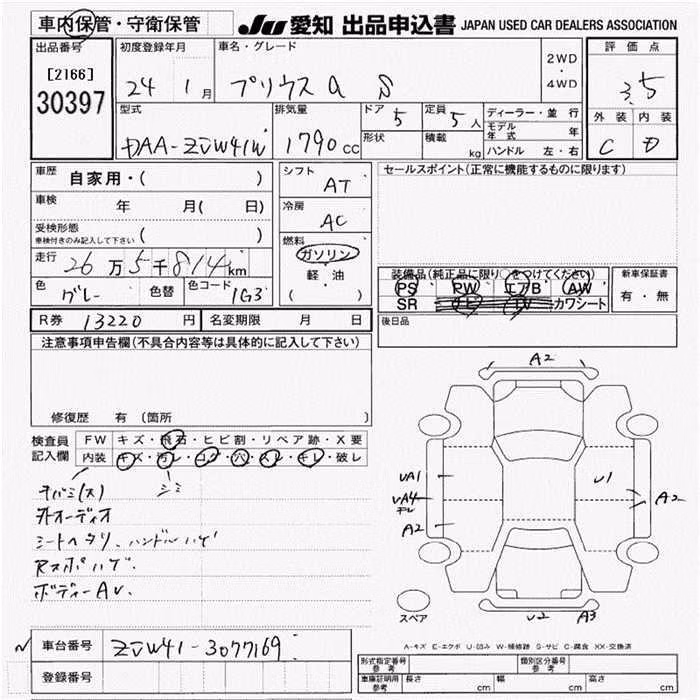 車内保管・守衛保管 JU 愛知 出品申込書 JAPAN USED CAR DEALERS ASSOCIATION
出品番号 初度登録年月 車名・グレード 2WD ・ 4WD 評価点
[2166]
30397 24 1月 プリウスα S 3.5
型式 排気量 ドア 5 定員 5人 ディーラー・並行 外装 内装
DAA-ZVW41W 1790cc 形状 積載 kg モデル年式 年 C D
ハンドル 左・右
車歴 自家用・( ) シフト AT セールスポイント(正常に機能するものに限ります)
車検 年 月( 日) 冷房 AC
受検形態
車検付きのみ記入して下さい ( ) 燃料 ガソリン
走行 26万5千814km 軽・油 装備品(純正品に限り○をつけてください) 新車保証書
色 グレー 色替 色コード 1G3 ( ) PS PW エアB AW 有・無
SR ナビ TV カワシート
R券 13220円 名変期限 月 日 後日品
注意事項申告欄(不具合内容等は具体的に記入して下さい)
修復歴 有(箇所
検査員 FW キズ・飛石・ヒビ割・リペア跡・X要
記入欄 内装 キズ・汚レ・コゲ・穴・スレ・キレ・破レ
シミ
外オーディオ
シートヘタリ、ハンドルハゲ
Rスポハゲ.
ボディーAU.
A2
UA1
UA4
A2
U1
A2
U2 A3
スペア
A-キズ E-エクボ U-凹み W-補修跡 S-サビ C-腐食 XX-交換済
車台番号 ZVW41-3077169
登録番号
形式指定番号 参考 類別区分番号 参考
車庫証明用 参考 長さ cm 幅 cm 高さ cm